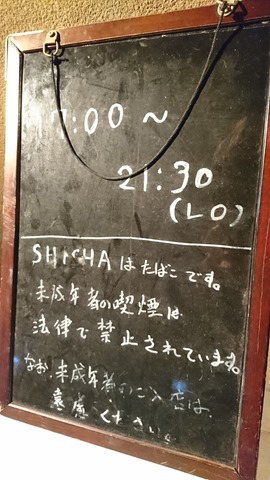 17:00 ~
21:30
(LO)
SHISHAはたばこです。
未成年者の喫煙は
法律で禁止されています。
なお、未成年者のご入店は、
遠慮ください。